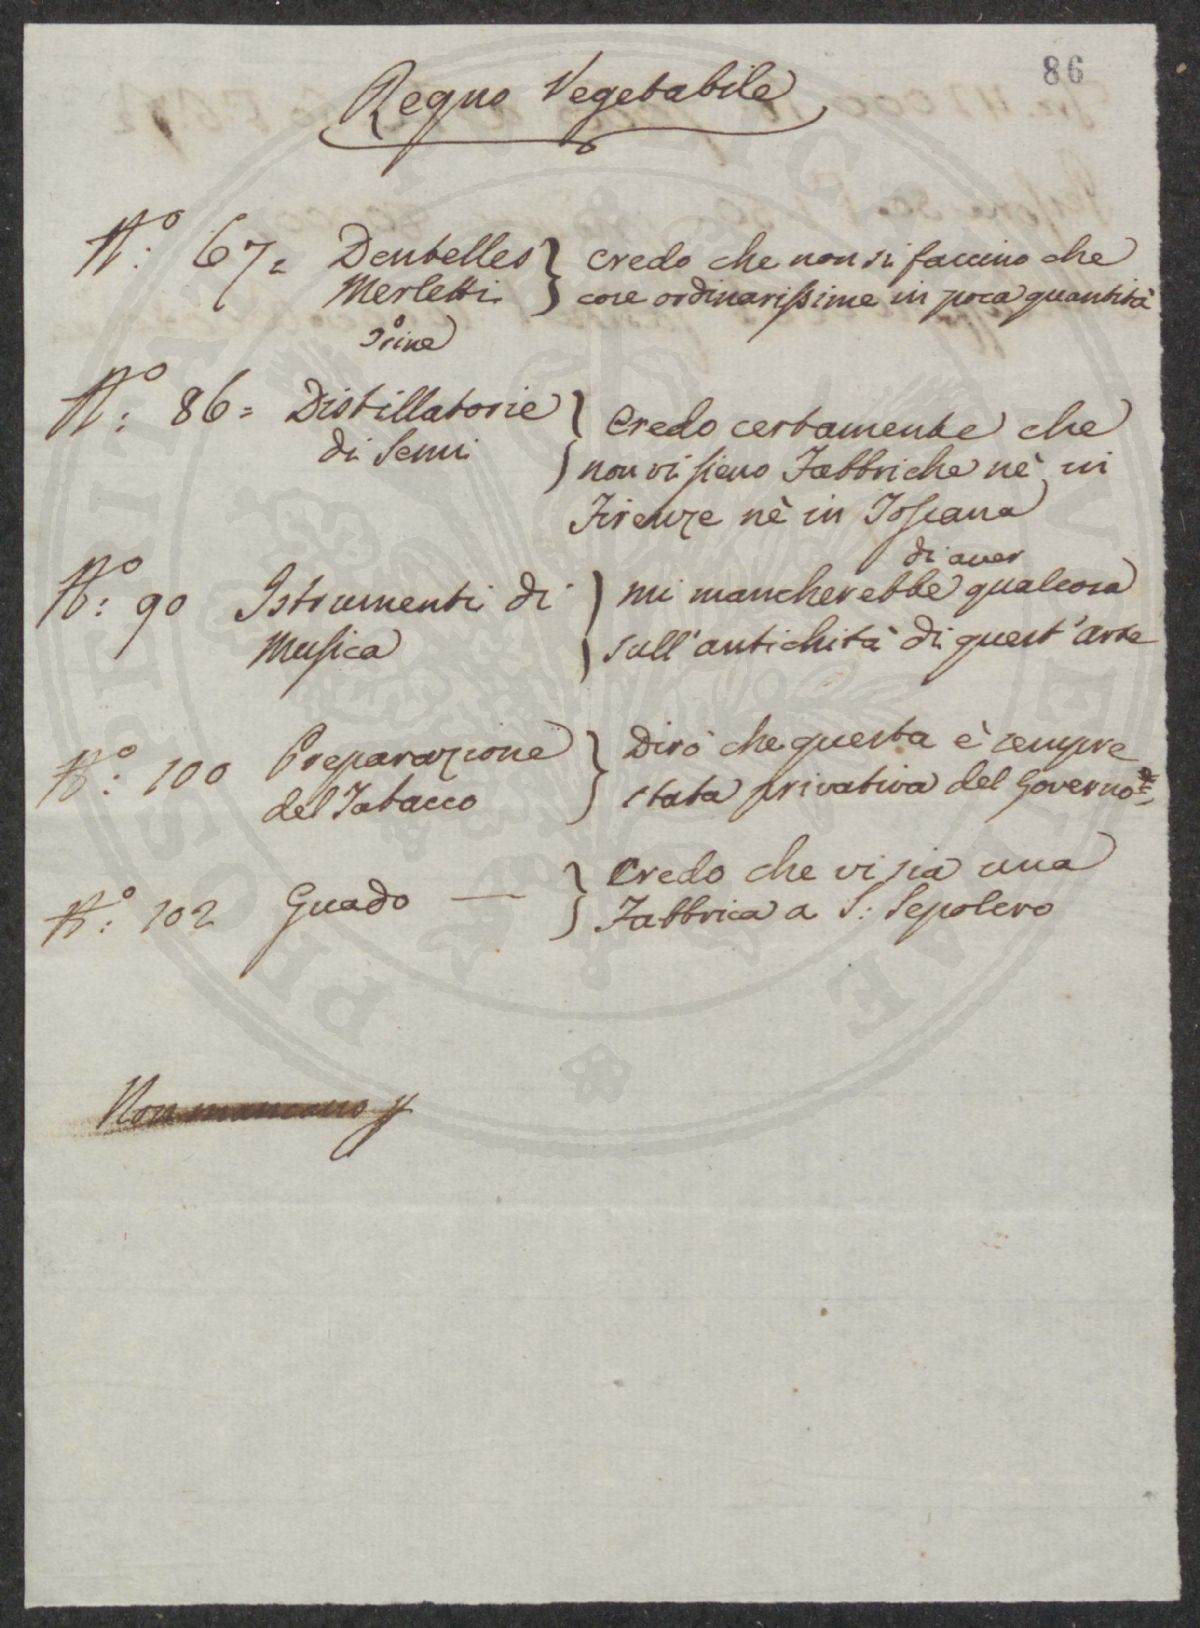 86
Regno Vegetabile
N.° 67= Dentelles } credo che non si faccino che
Merletti } cose ordinarissime in poca quantità
Trine
N.° 86= Distillatorie } Credo certamente che
di Semi } non vi sieno Fabbriche nè in
Firenze nè in Toscana
di aver
N.° 90 Istrumenti di } mi mancherebbe qualcosa
Musica } sull'antichità di quest'arte
N.° 100 Preparazione } Dirò che questa è sempre
del Tabacco } stata privativa del Governo
N.° 102 Guado — } Credo che vi sia una
Fabbrica a S: Sepolcro
Non mancano